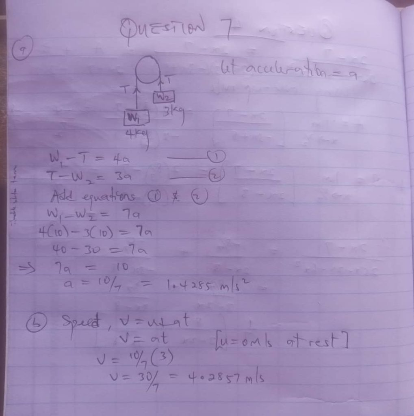 QUESTION 7
(a)
let acceleration = a
T T
W₁ W₂
4kg 3kg
W₁ - T = 4a ——— (1)
T - W₂ = 3a ——— (2)
Add equations (1) & (2)
W₁ - W₂ = 7a
4(10) - 3(10) = 7a
40 - 30 = 7a
⇒ 7a = 10
a = 10/7 = 1.4285 m/s²
(b) Speed, V = u+at
V = at [u=0m/s at rest]
V = 10/7 (3)
V = 30/7 = 4.2857 m/s